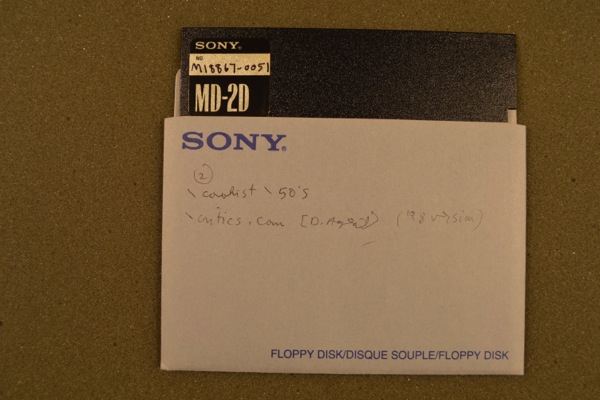 SONY®
NO
M18867-0051
MD-2D
SONY®
2
\ coolist \ 50's
\ critics.com [D. Agent] ('98 version)
FLOPPY DISK/DISQUE SOUPLE/FLOPPY DISK